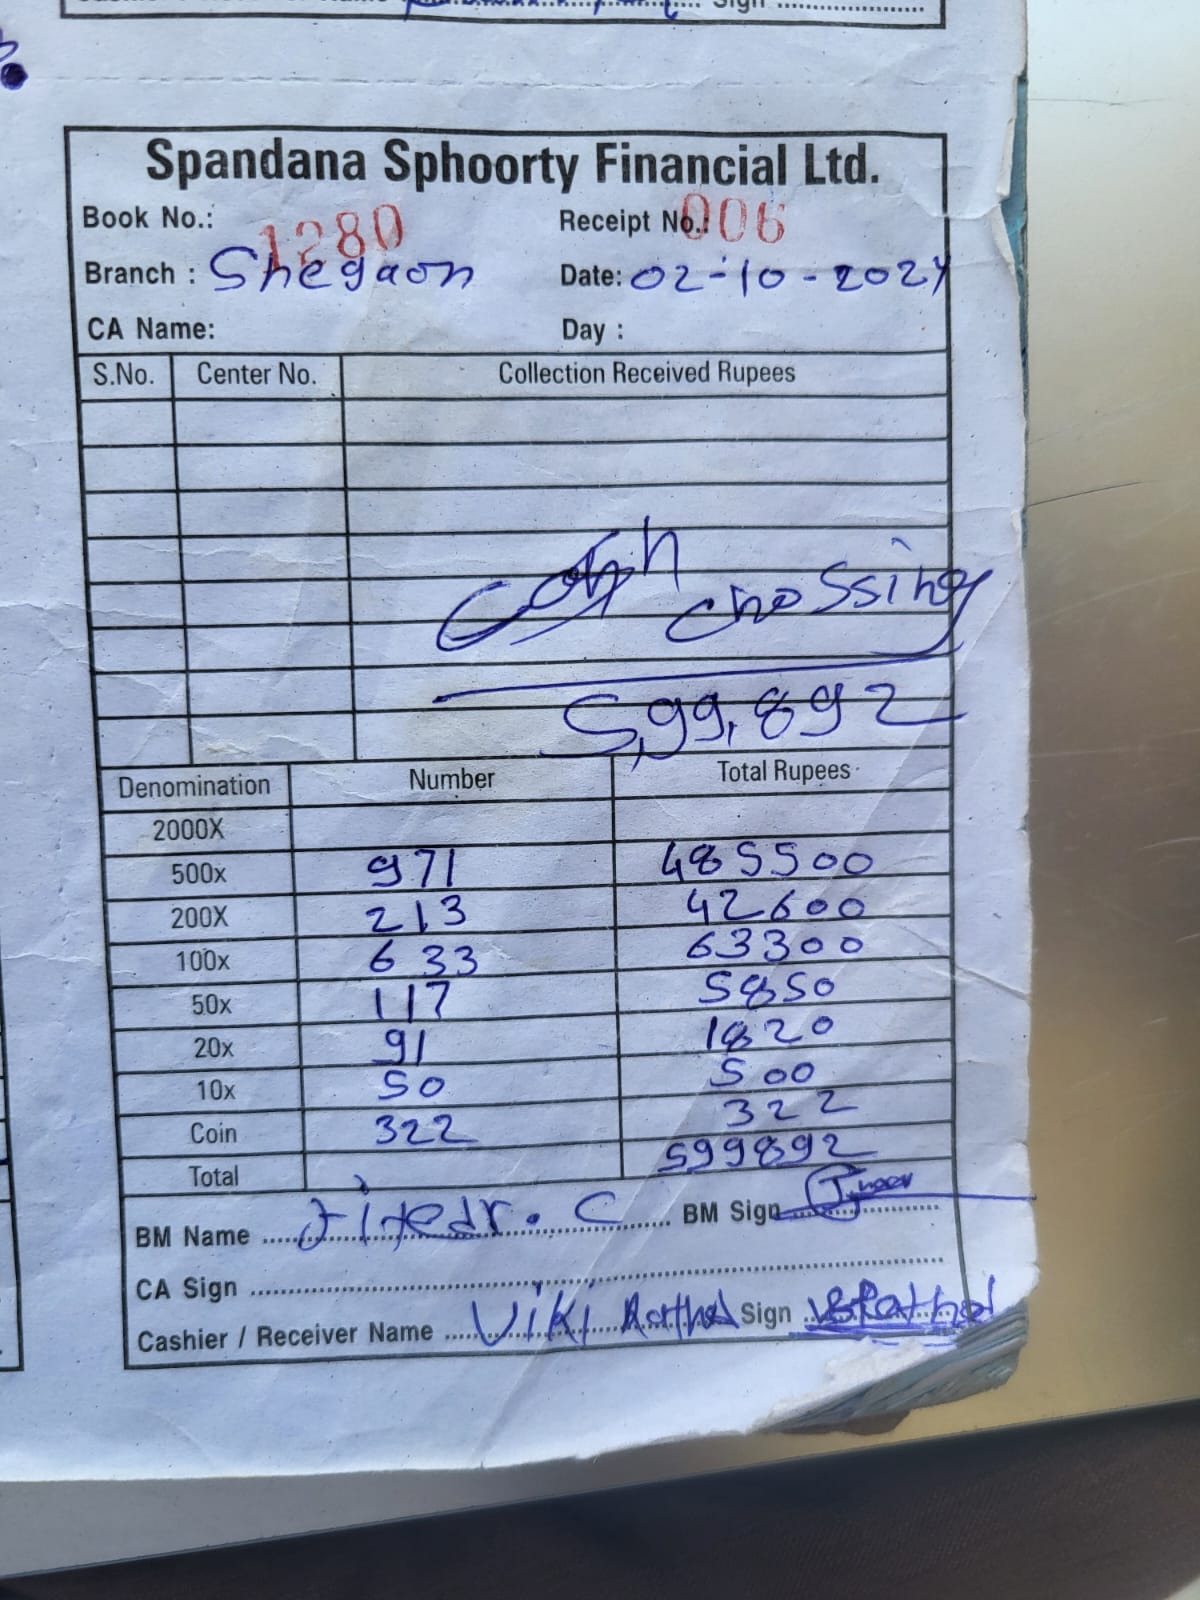 Sign
Spandana Sphoorty Financial Ltd.
Book No.: 1280 Receipt No.: 006
Branch : Shegaon Date: 02-10-2024
CA Name: Day :
S.No. Center No. Collection Received Rupees
Cash chossing
5,99,892
Denomination Number Total Rupees
2000X
500x 971 485500
200X 213 42600
100x 633 63300
50x 117 5850
20x 91 1820
10x 50 500
Coin 322 322
Total 599892
BM Name C BM Sign
CA Sign
Cashier / Receiver Name Viki Rathod Sign VBRathod